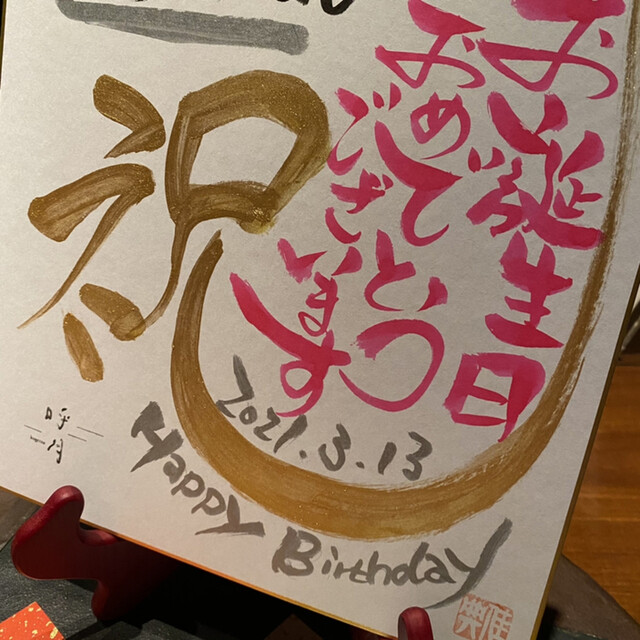 お誕生日
おめでとう
ございます
祝
2021.3.13
Happy Birthday